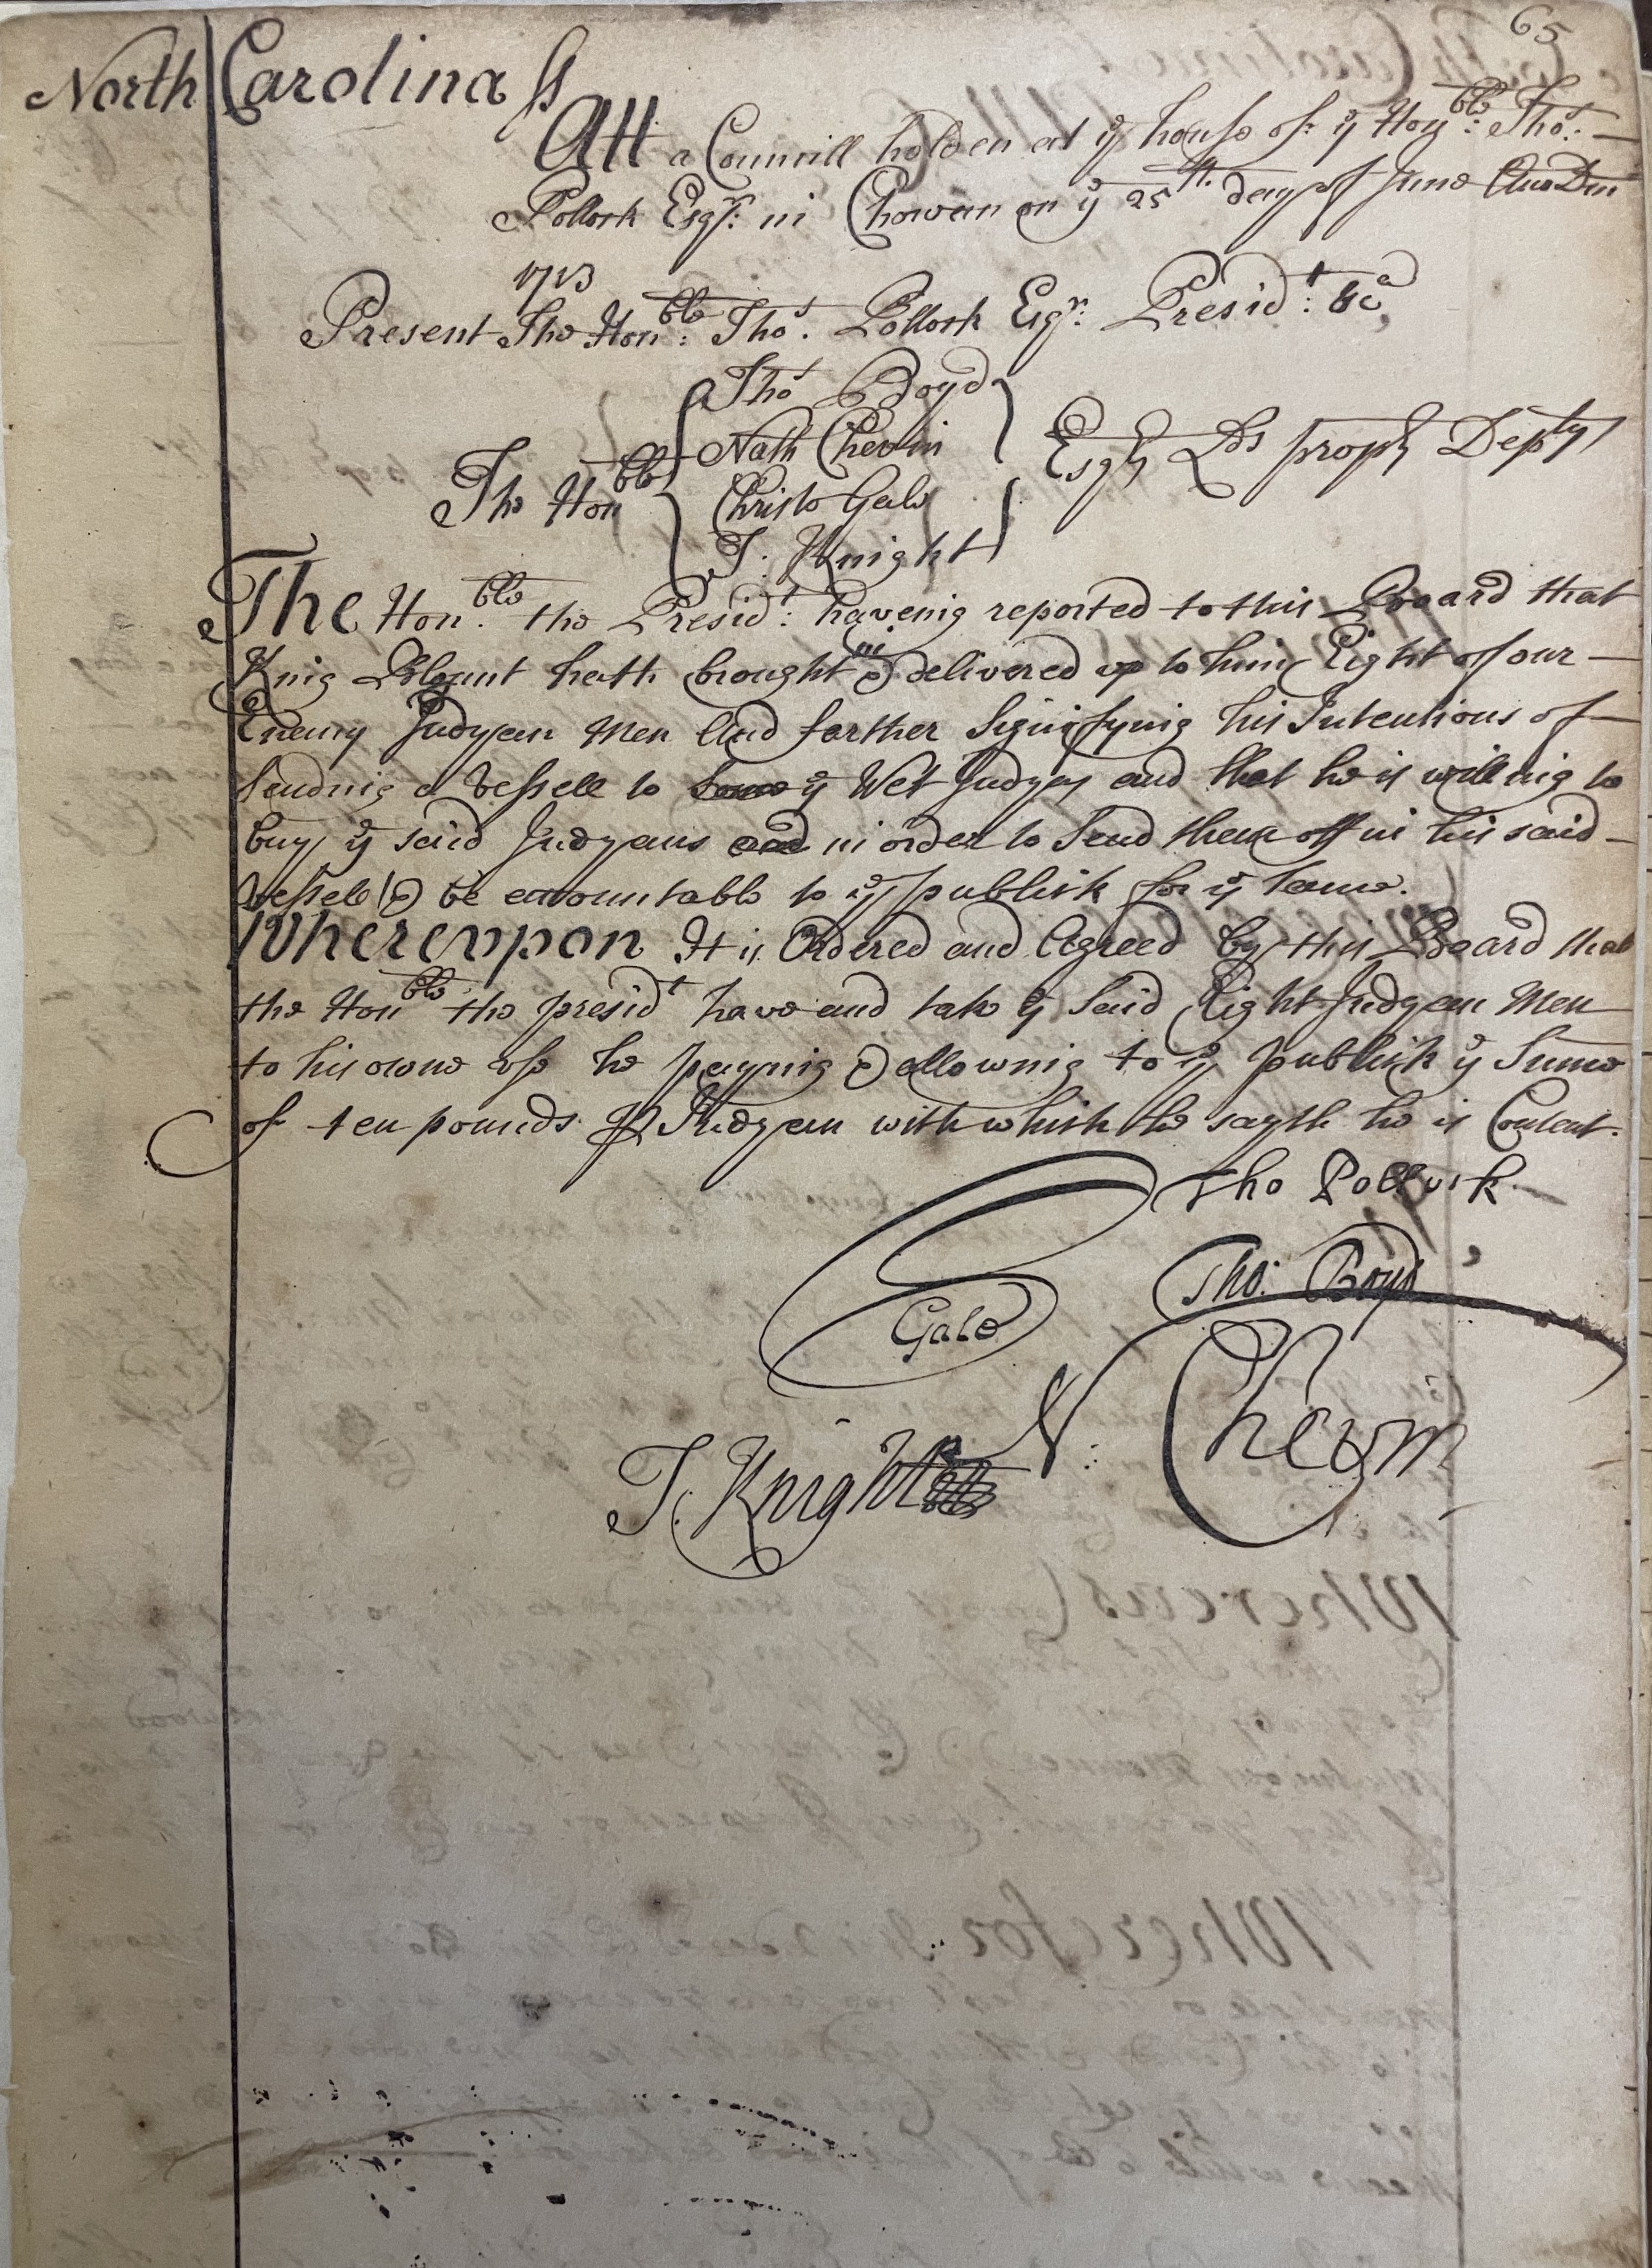 65
North Carolina ss
Att a Councill holden at ye house of ye Honble: Tho:
Pollock Esqr: in Chowan on ye 25th. day of June Ano Dm
1713
Present The Honble: Thos. Pollock Esqr: Presidt: &ca
Thos Boyd
Nath Chevin
The Honble Esqrs Lds propts Deptys
Christo Gale
T. Knight
The Hon.ble the Presidt: haveing reported to this Board that
King Blount hath brought in & delivered up to him Eight of our
Enemy Indyan Men And farther Signifying his Intentions of
Sending a Vessell to Some ye Wet Indyes and that he is willing to
buy ye said Indyans and in order to Send them off in his said
Vessele & be accountable to ye publick for ye same.
Wherevpon It is Ordered and Agreed by this Board that
the Honble the presidt have and take ye Said Eight Indyan Men
to his owne vse he paynig & allowing to ye publick ye Sume
of ten pounds p Indyan with which he sayth he is Content.
Tho Pollock
Tho: Boyd
Gale
N: Chevin
T. Knight